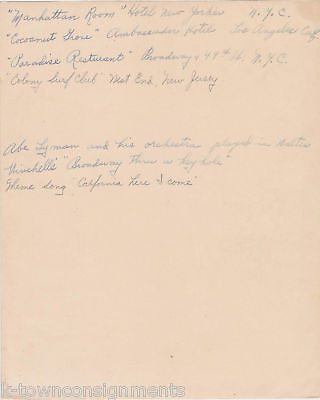 "Manhattan Room" Hotel New Yorker N.Y.C.
"Cocoanut Grove" Ambassador Hotel Los Angeles Calif.
"Paradise Resturant" Broadway & 49th St. N.Y.C.
"Colony Surf Club" West End, New Jersey
Abe Lyman and his orchestra played in Walter
Winchell's "Broadway thru a keyhole"
Theme song "California here I come"
k-townconsignments